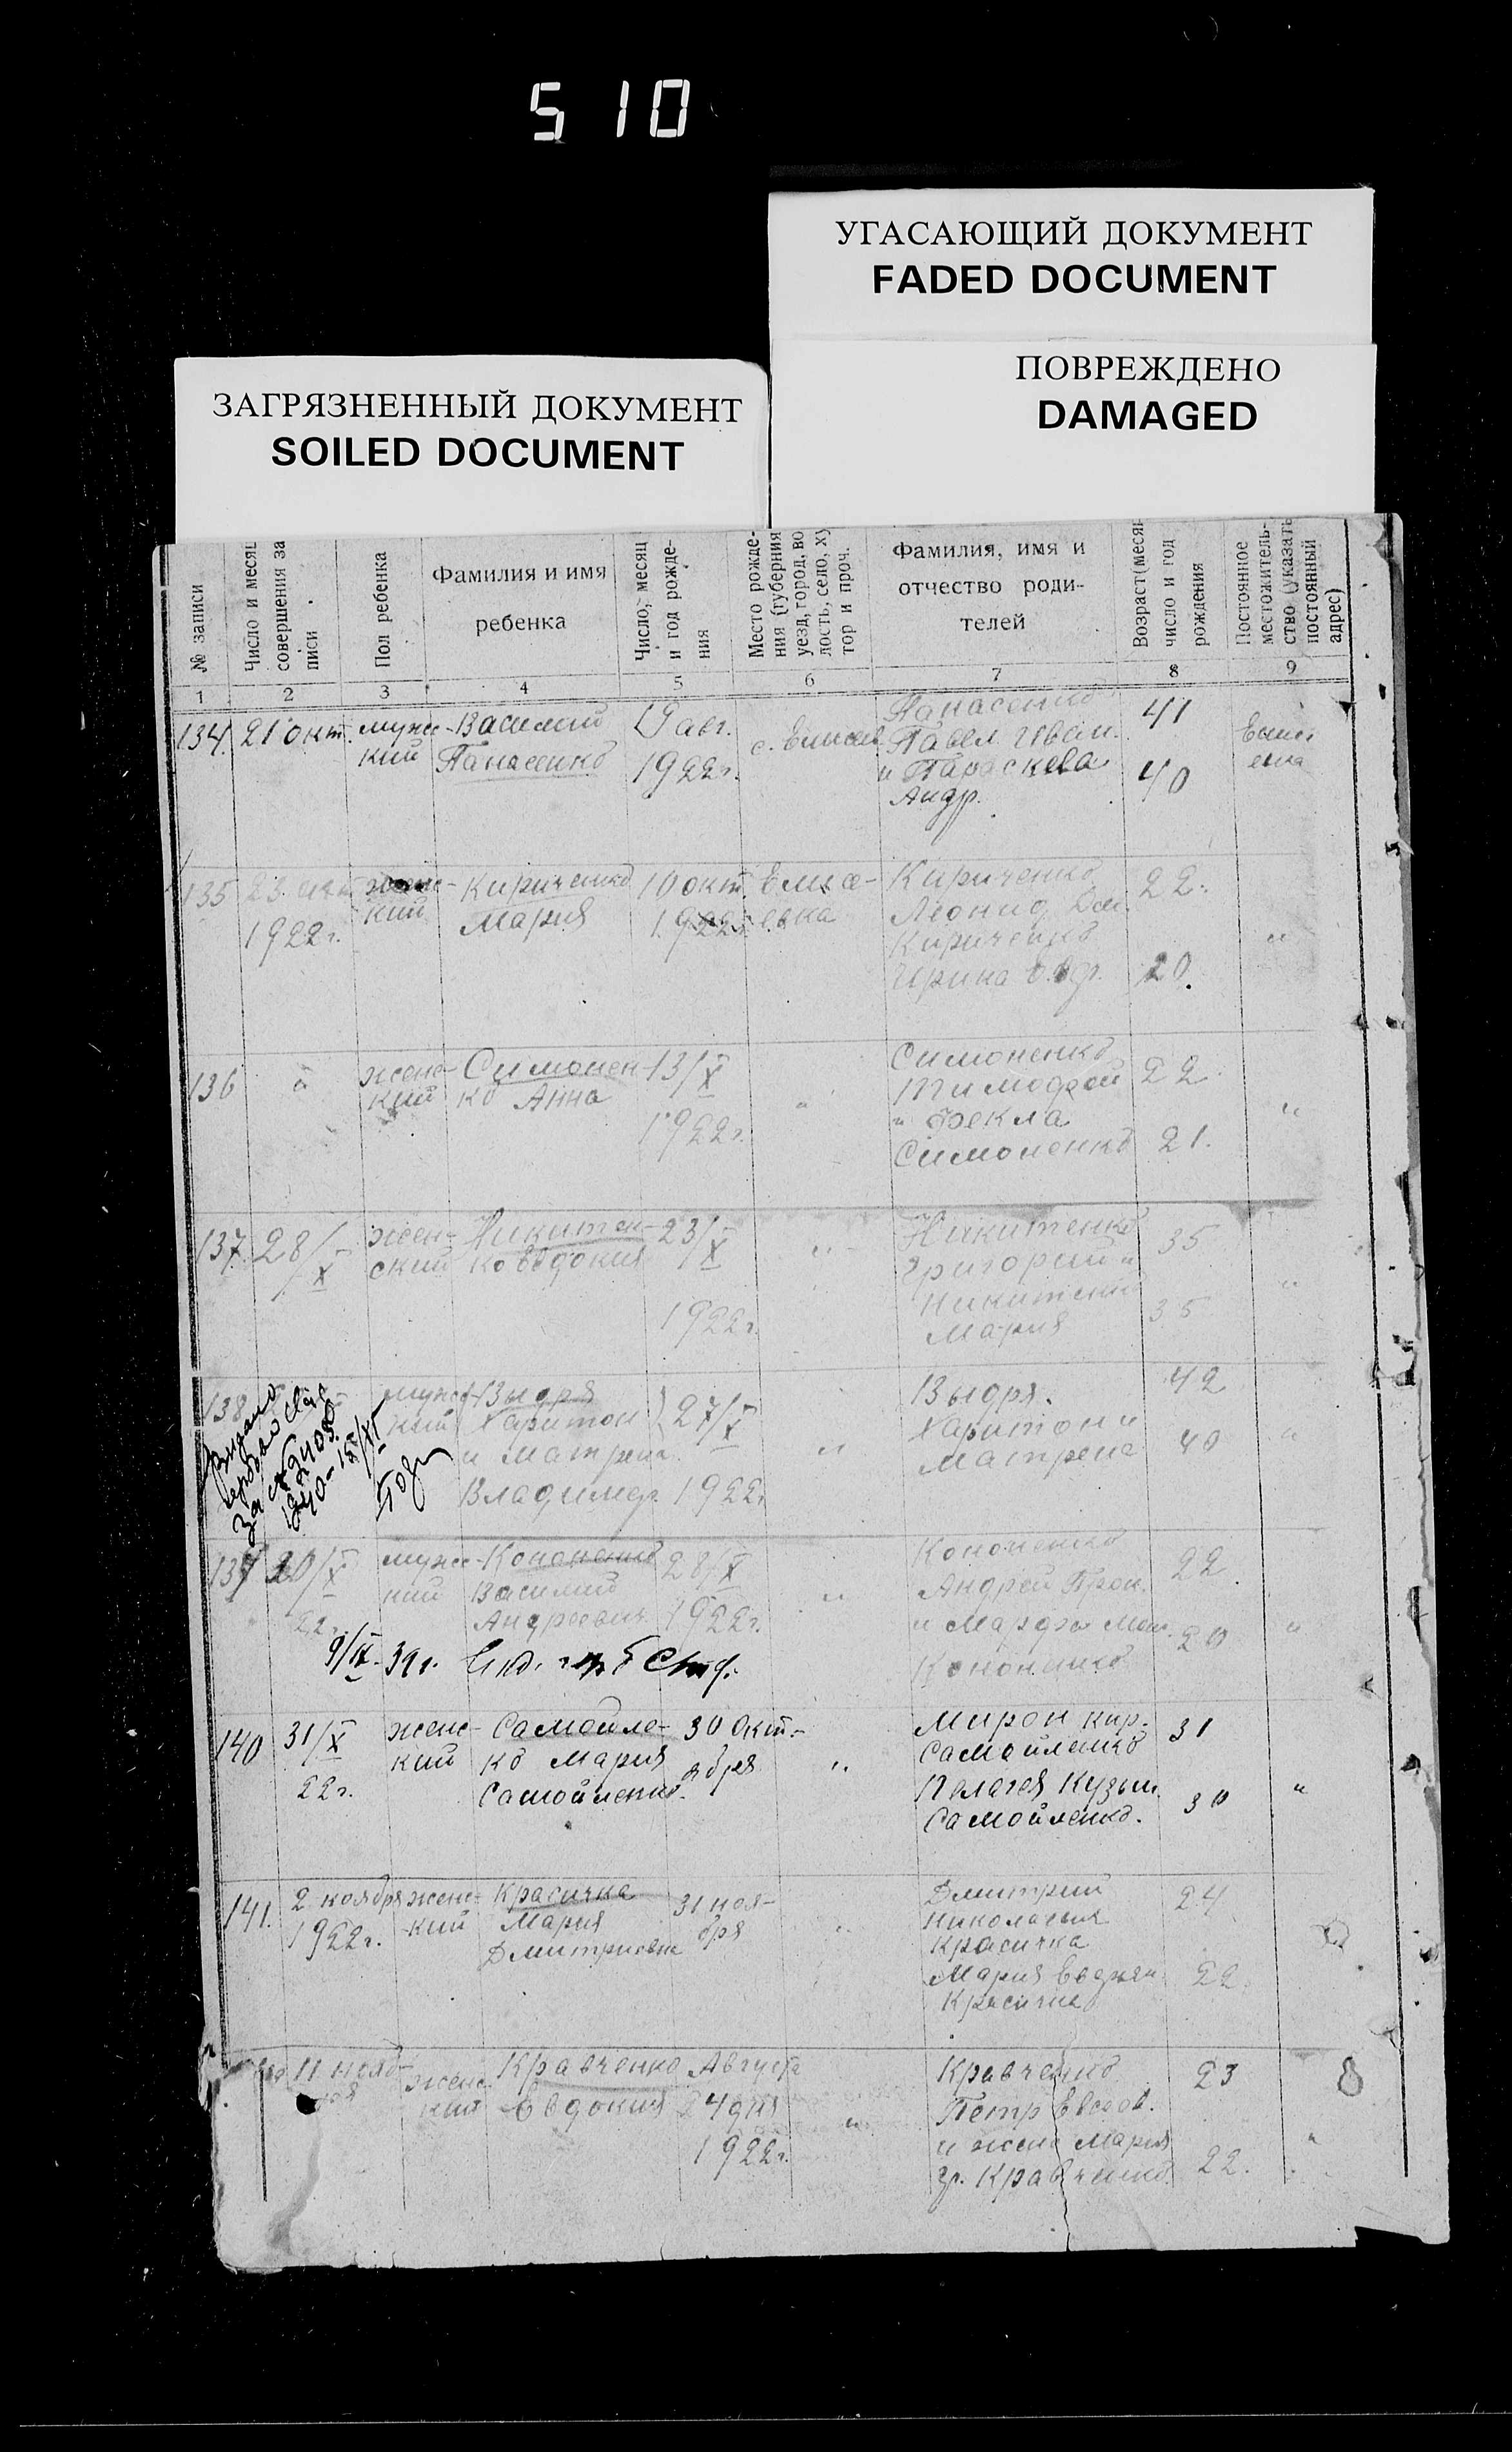 510
УГАСАЮЩИЙ ДОКУМЕНТ
FADED DOCUMENT
ПОВРЕЖДЕНО
DAMAGED
ЗАГРЯЗНЕННЫЙ ДОКУМЕНТ
SOILED DOCUMENT
№ записи
Число и месяц
совершения за
писи
Пол ребенка
Фамилия и имя
ребенка
Число, месяц
и год рожде-
ния
Место рожде-
ния (губерния
уезд, город, во
лость, село, ху
тор и проч.
Фамилия, имя и
отчество роди-
телей
Возраст (месяц
число и год
рождения
Постоянное
местожитель-
ство (указать
постоянный
адрес)
1 2 3 4 5 6 7 8 9
134 21 окт. мужс-
кий
Василий
Панасенко
19 авг.
1922 г.
с.
Панасенко
Павел Иван.
и Параскева
Андр.
41
40
135
1922 г.
женс-
кий
Кириченко
Мария
10 окт.
1922
Елисе-
евка
Кириченко
Леонид
Кириченко
Ирина
22.
20.
"
136 "
женс-
кий
Симонен-
ко Анна
13/X
1922 г.
"
Симоненко
Тимофей
и Фекла
Симоненко
22
21.
"
137 28/X
жен-
ский
Никитен-
ко Евдокия
23/X
1922 г.
"
Никитенко
Григорий и
Никитенко
Мария
35
35
"
138
мужс-
кий
Выдря
Харитон
и Матрена
Владимир
27/X
1922 г.
"
Выдря
Харитон и
Матрена
42
40
"
139
22 г.
мужс-
кий
Кононенко
Василий
Андреевич
28/X
1922 г.
"
Кононенко
Андрей
и Марфа
Кононенко
22
20
"
39 г.
140 31/X
22 г.
женс-
кий
Самойле-
ко Мария
Самойленко.
30 Окт-
ября
"
Мирон Кир.
Самойленко
Пелагея Кузьм.
Самойленко.
31
30
"
141. 2 ноября
1922 г.
женс-
кий
Красичка
Мария
Дмитриевна
31 ноя-
бря
"
Дмитрий
Николаевич
Красичка
Мария
Красичка
24
22.
11 нояб-
женс-
кий
Кравченко
Евдокия
Августа
24 дня
1922 г.
"
Кравченко
Петр Евсеев.
и жена Мария
гр. Кравченко.
23
22.
"
8